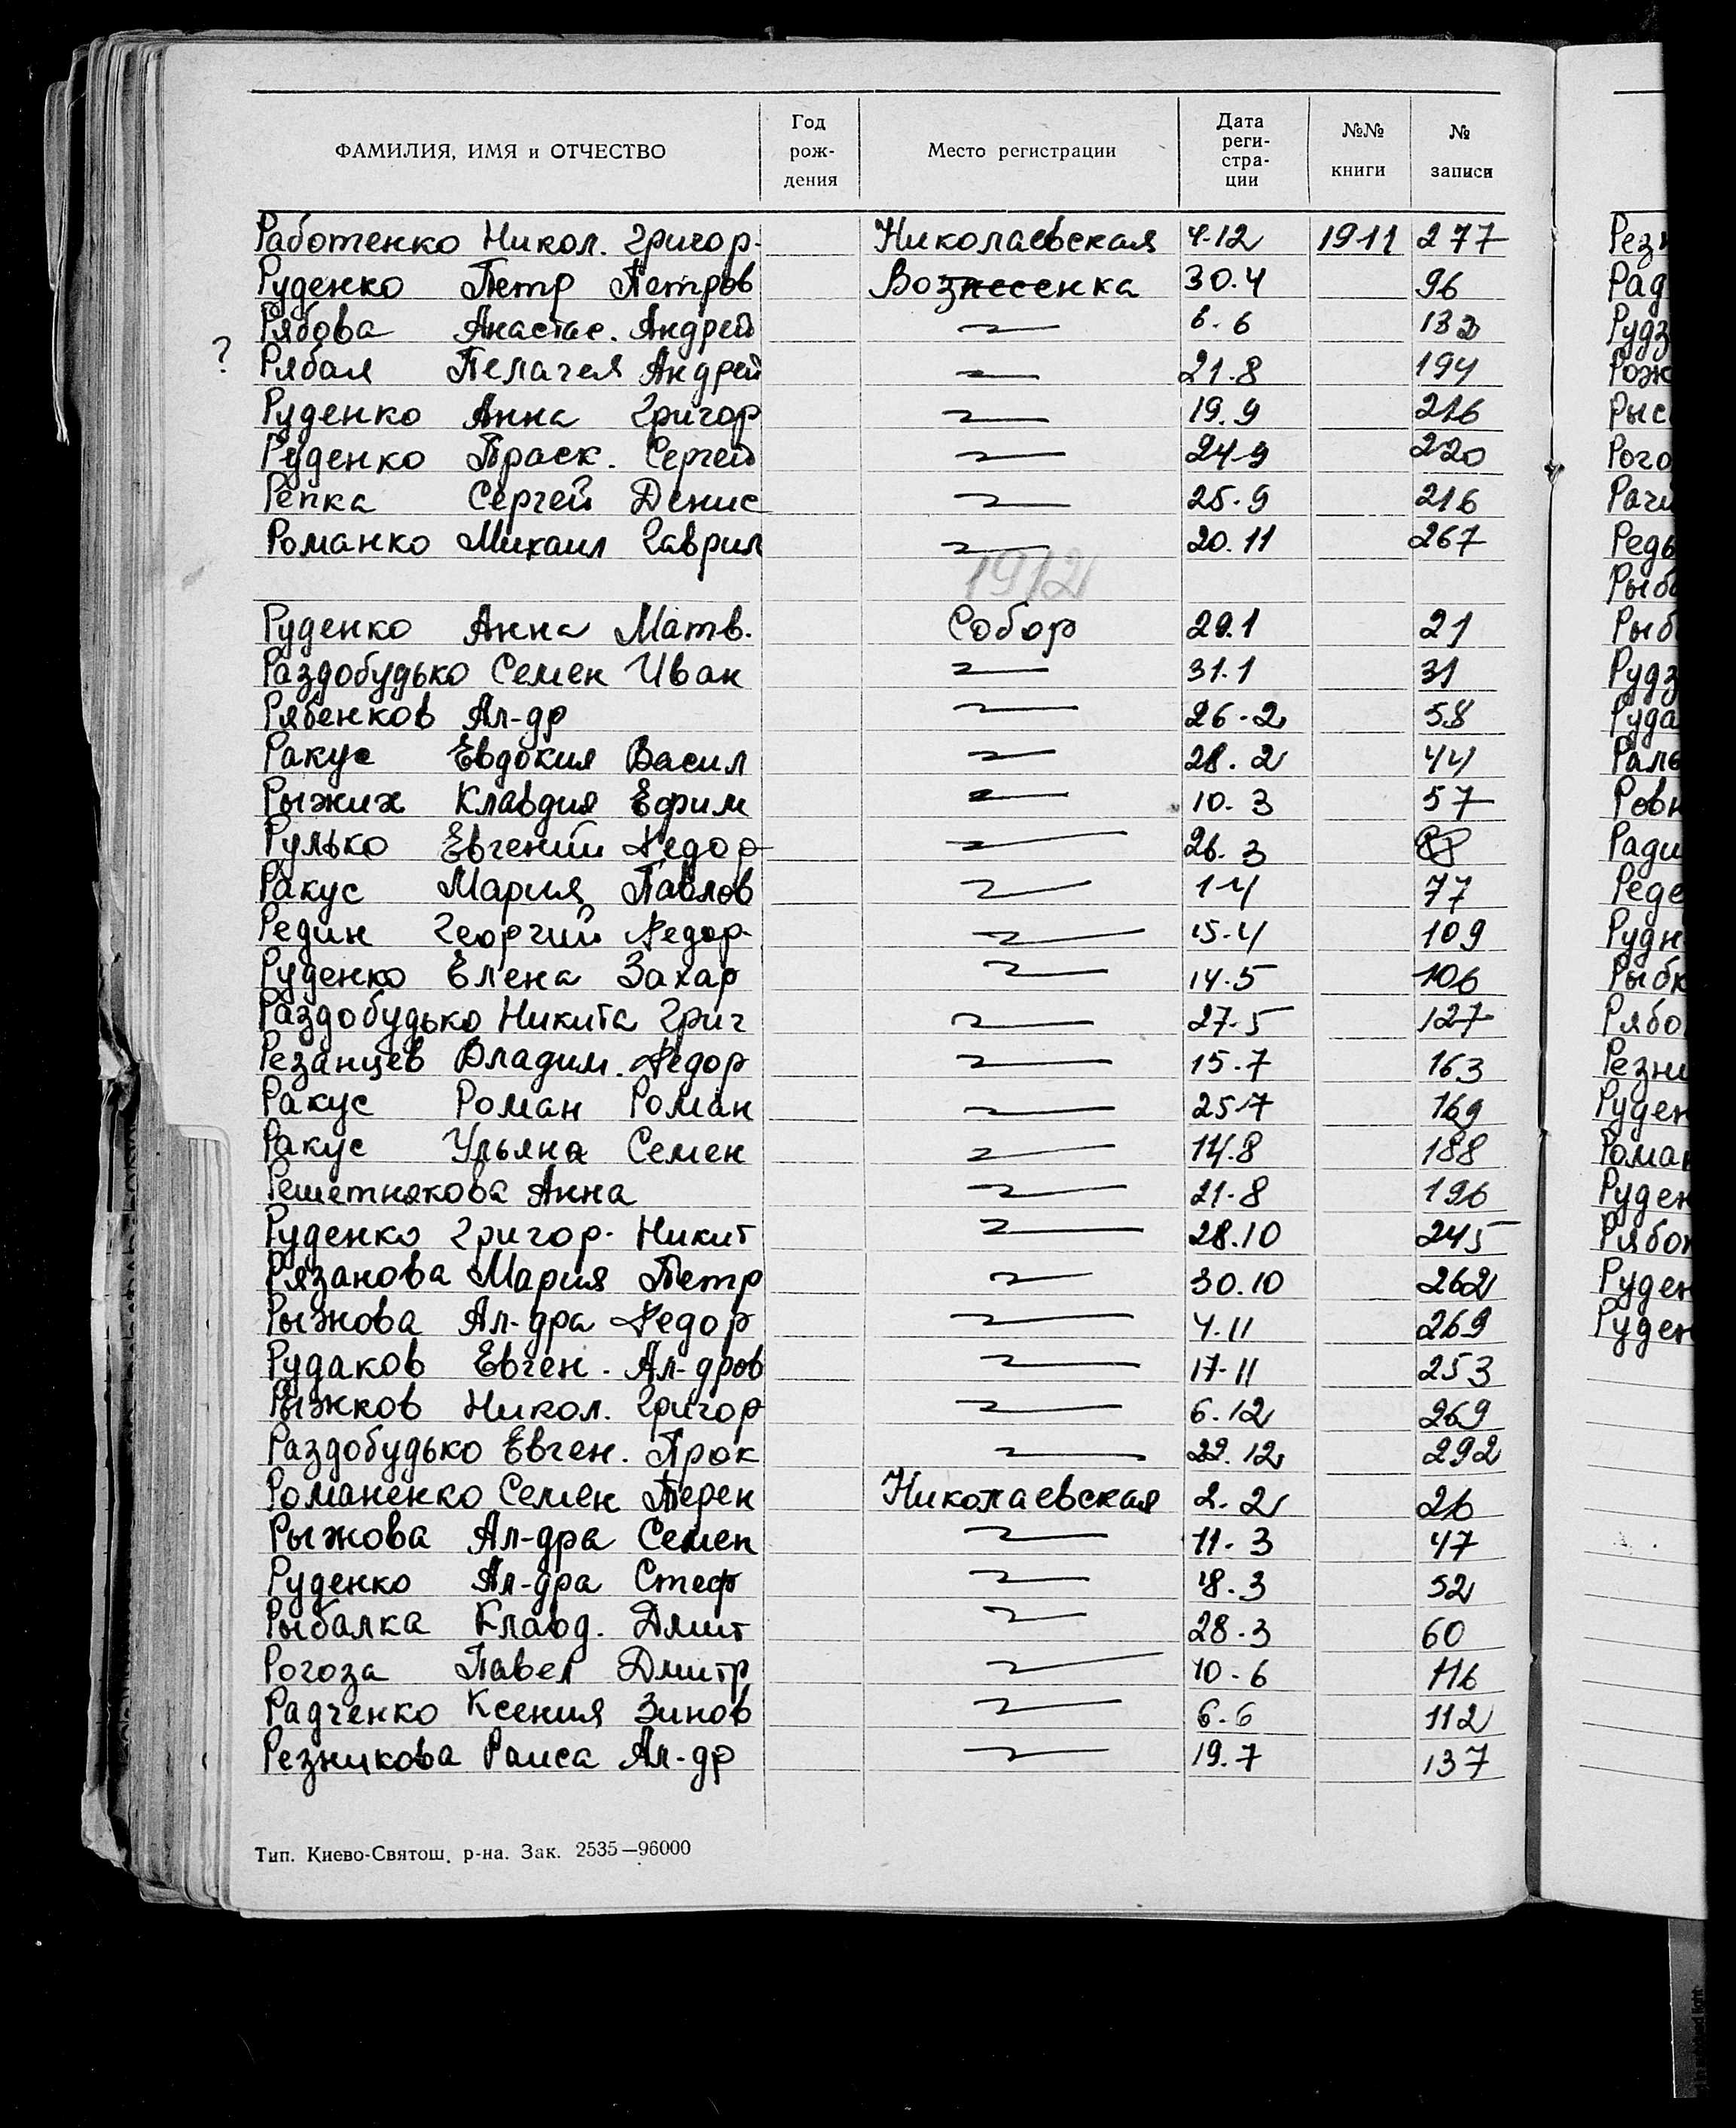 ФАМИЛИЯ, ИМЯ и ОТЧЕСТВО Год рождения Место регистрации Дата регистрации №№ книги № записи
Работенко Никол. Григор. Николаевская 4.12 1911 277
Руденко Петр Петров Вознесенка 30.4 96
Рябова Анастас. Андрей 6.6 132
? Рябая Пелагея Андрей 21.8 194
Руденко Анна Григор 19.9 216
Руденко Праск. Сергей 24.9 220
Репка Сергей Денис 25.9 216
Романко Михаил Гаврил 20.11 267
1912
Руденко Анна Матв. Собор 29.1 21
Раздобудько Семен Иван 31.1 31
Рябенков Ал-др 26.2 58
Ракус Евдокия Васил 28.2 44
Рыжих Клавдия Ефим 10.3 57
Рулько Евгений Федор 26.3 88
Ракус Мария Павлов 1.4 77
Редин Георгий Федор. 15.4 109
Руденко Елена Захар 14.5 106
Раздобудько Никита Григ 27.5 127
Резанцев Владим. Федор 15.7 163
Ракус Роман Роман 25.7 169
Ракус Ульяна Семен 14.8 188
Решетнякова Анна 21.8 196
Руденко Григор. Никит 28.10 245
Рязанова Мария Петр 30.10 262
Рыжова Ал-дра Федор 4.11 269
Рудаков Евген. Ал-дров 17.11 253
Рыжков Никол. Григор 6.12 269
Раздобудько Евген. Прок 22.12 292
Романенко Семен Терен Николаевская 2.2 26
Рыжова Ал-дра Семен 11.3 47
Руденко Ал-дра Стеф 18.3 52
Рыбалка Клавд. Дмит 28.3 60
Рогоза Павел Дмитр 10.6 116
Радченко Ксения Зинов 6.6 112
Резникова Раиса Ал-др 19.7 137
Тип. Киево-Святош. р-на. Зак. 2535—96000